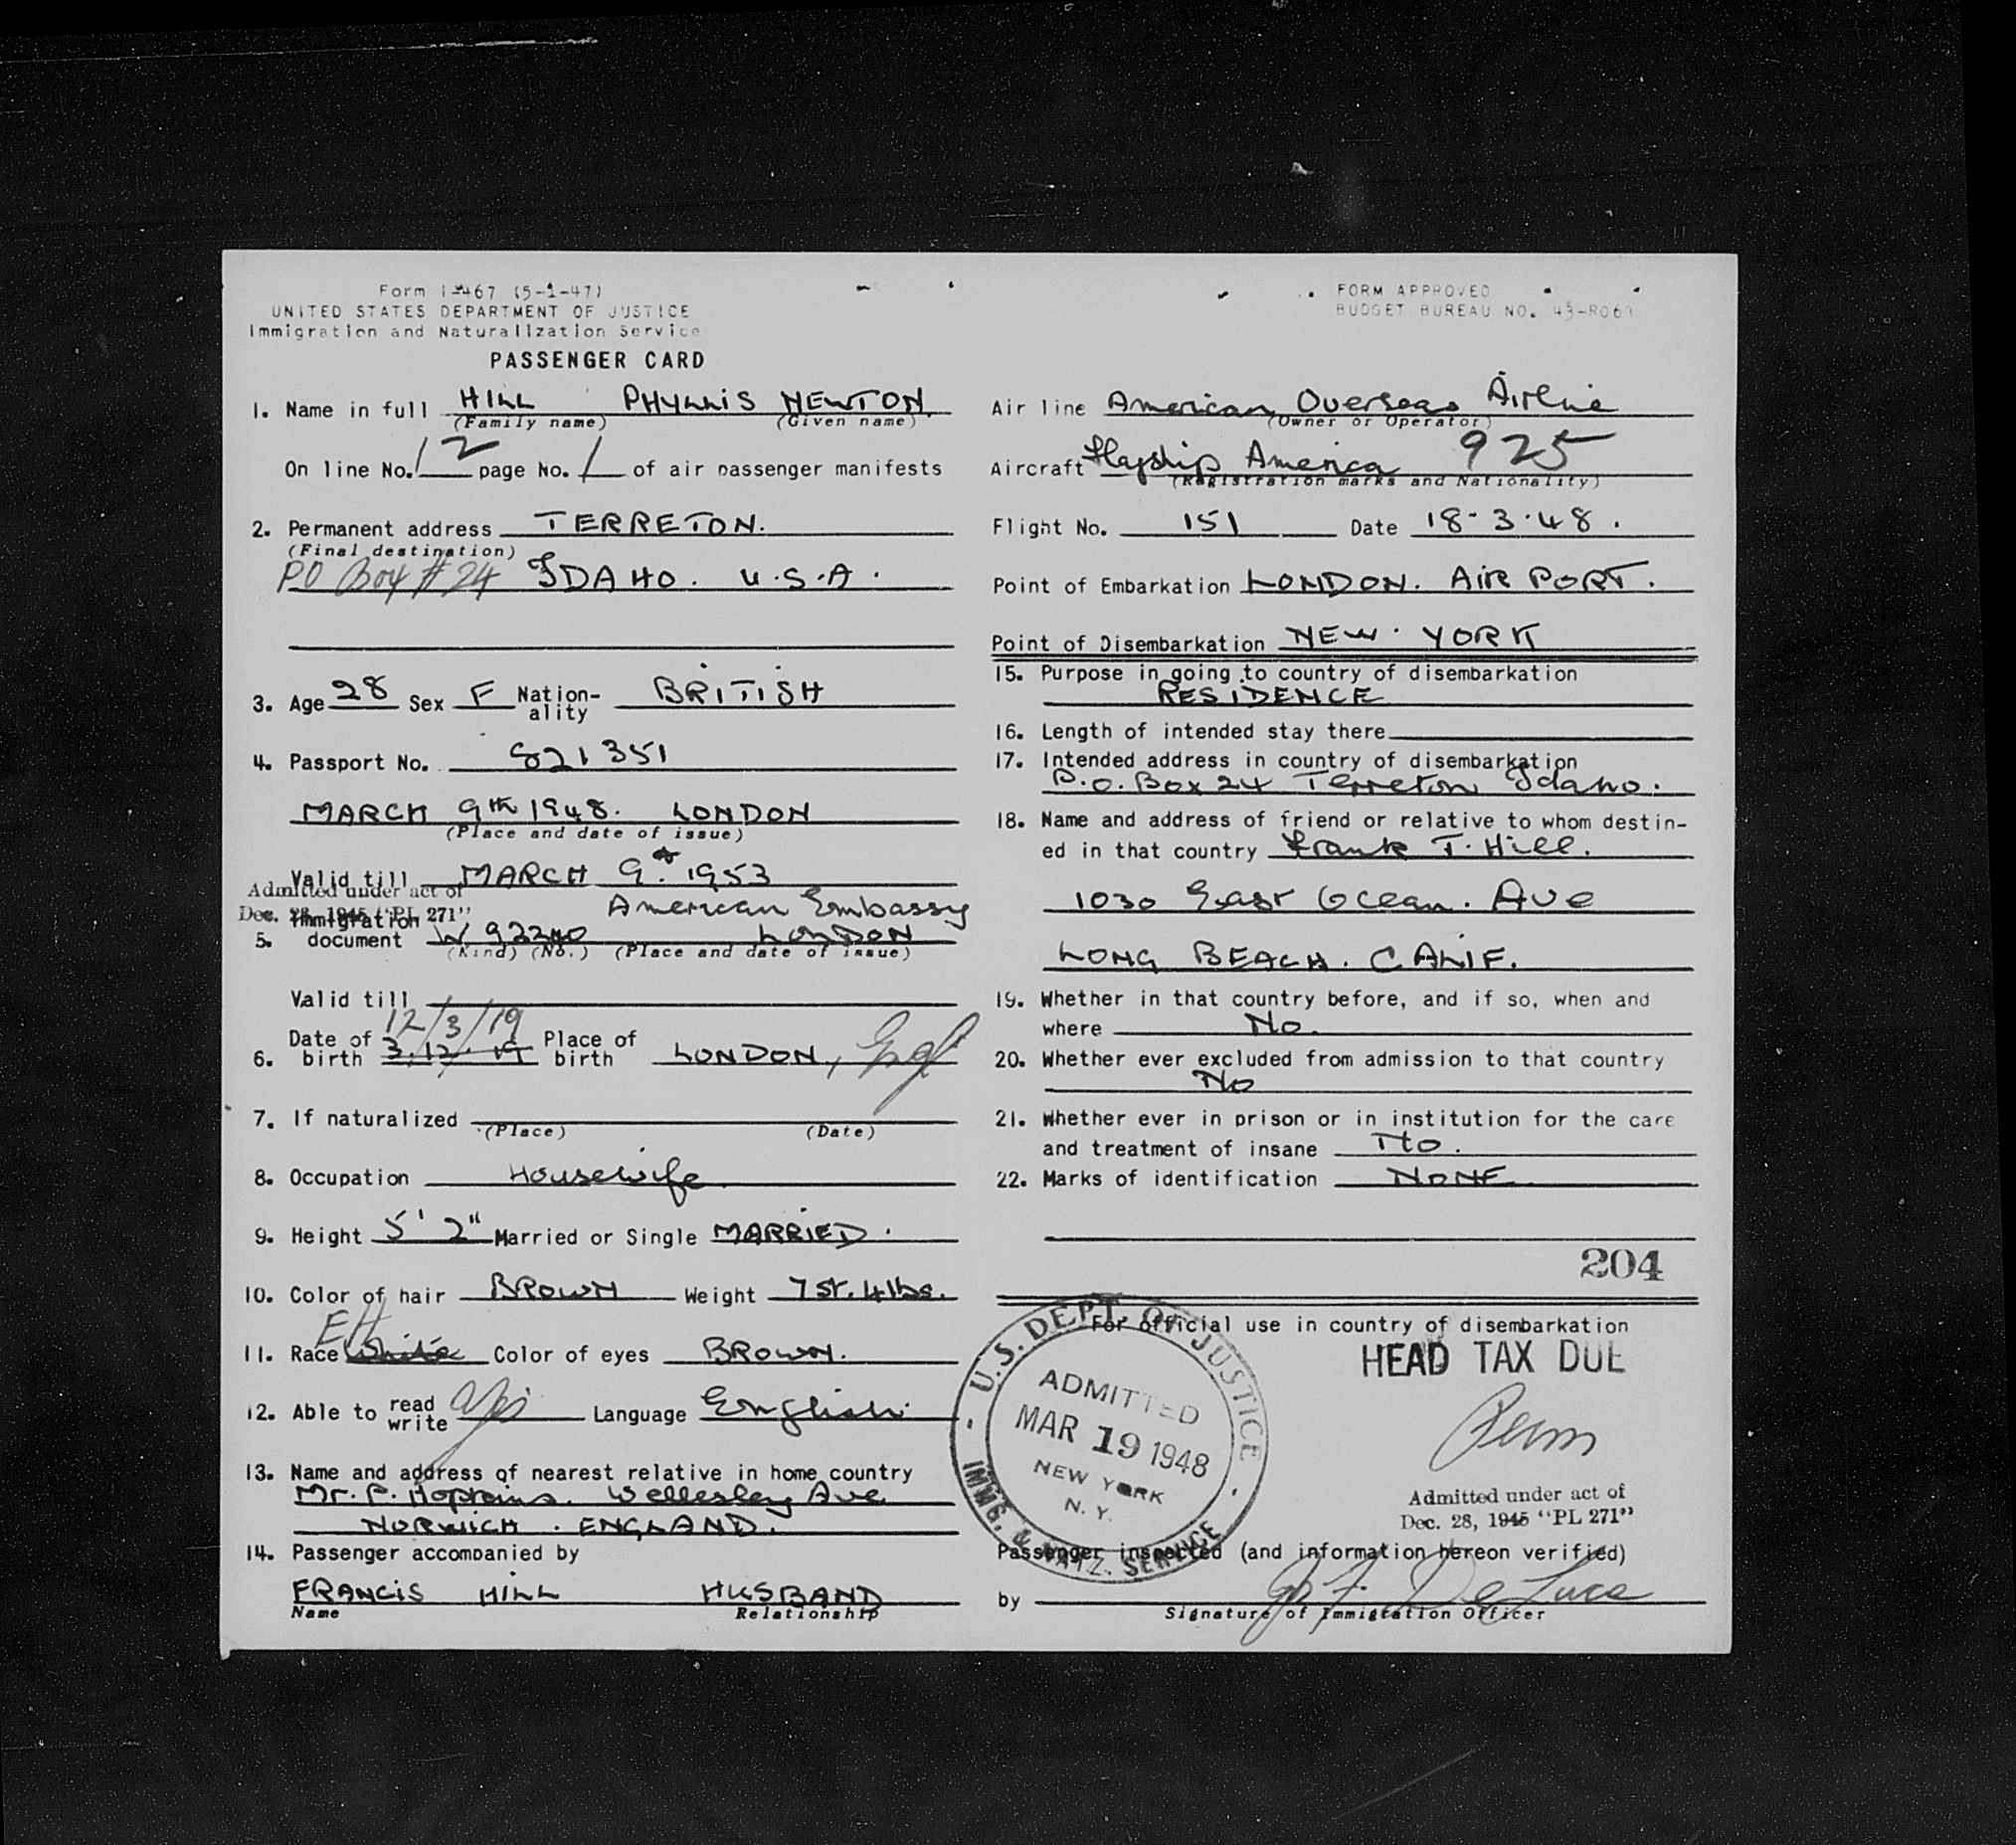 Form I-467 (5-1-47)
UNITED STATES DEPARTMENT OF JUSTICE
Immigration and Naturalization Service
PASSENGER CARD
FORM APPROVED
BUDGET BUREAU NO. 43-R063
1. Name in full HILL PHYLLIS NEWTON.
(Family name) (Given name)
On line No. 12 page No. 1 of air passenger manifests
2. Permanent address TERRETON.
(Final destination)
PO Box #24 IDAHO. U.S.A.
3. Age 28 Sex F Nation-ality BRITISH
4. Passport No. 821351
MARCH 9th 1948. LONDON
(Place and date of issue)
Valid till MARCH 9. 1953
Admitted under act of
Dec. 28, 1945 "PL 271"
American Embassy
5. Immigration document W. 92240 LONDON
(Kind) (No.) (Place and date of issue)
Valid till
12/3/19
6. Date of birth 3.12.19 Place of birth LONDON, Engl
7. If naturalized
(Place) (Date)
8. Occupation Housewife.
9. Height 5' 2" Married or Single MARRIED.
10. Color of hair BROWN Weight 7 st. 4 lbs.
EH
11. Race White Color of eyes BROWN.
12. Able to read write Yes Language English
13. Name and address of nearest relative in home country
Mr. P. Hopkins. Wellesley Ave
NORWICH. ENGLAND.
14. Passenger accompanied by
FRANCIS HILL HUSBAND
Name Relationship
Air line American Overseas Airline
(Owner or Operator)
Aircraft Flagship America 925
(Registration marks and Nationality)
Flight No. 151 Date 18.3.48.
Point of Embarkation LONDON. AIRPORT.
Point of Disembarkation NEW. YORK
15. Purpose in going to country of disembarkation
RESIDENCE
16. Length of intended stay there
17. Intended address in country of disembarkation
P.O. Box 24 Terreton Idaho.
18. Name and address of friend or relative to whom destin-
ed in that country Frank T. Hill.
1030 East Ocean. Ave
LONG BEACH. CALIF.
19. Whether in that country before, and if so, when and
where No.
20. Whether ever excluded from admission to that country
No
21. Whether ever in prison or in institution for the care
and treatment of insane No.
22. Marks of identification NONE
204
For official use in country of disembarkation
HEAD TAX DUE
U.S. DEPT. OF JUSTICE
ADMITTED
MAR 19 1948
NEW YORK
N. Y.
IMMG. & NATZ. SERVICE
Perm
Admitted under act of
Dec. 28, 1945 "PL 271"
Passenger inspected (and information hereon verified)
by De Luca
Signature of Immigration Officer